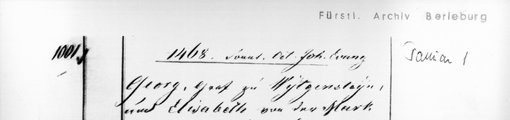 Fürstl. Archiv Berleburg
1001
1468. Oct. Joh. Evang
Georg, Graf zu Wytgensteyn,
und Elisabeth von der Mark